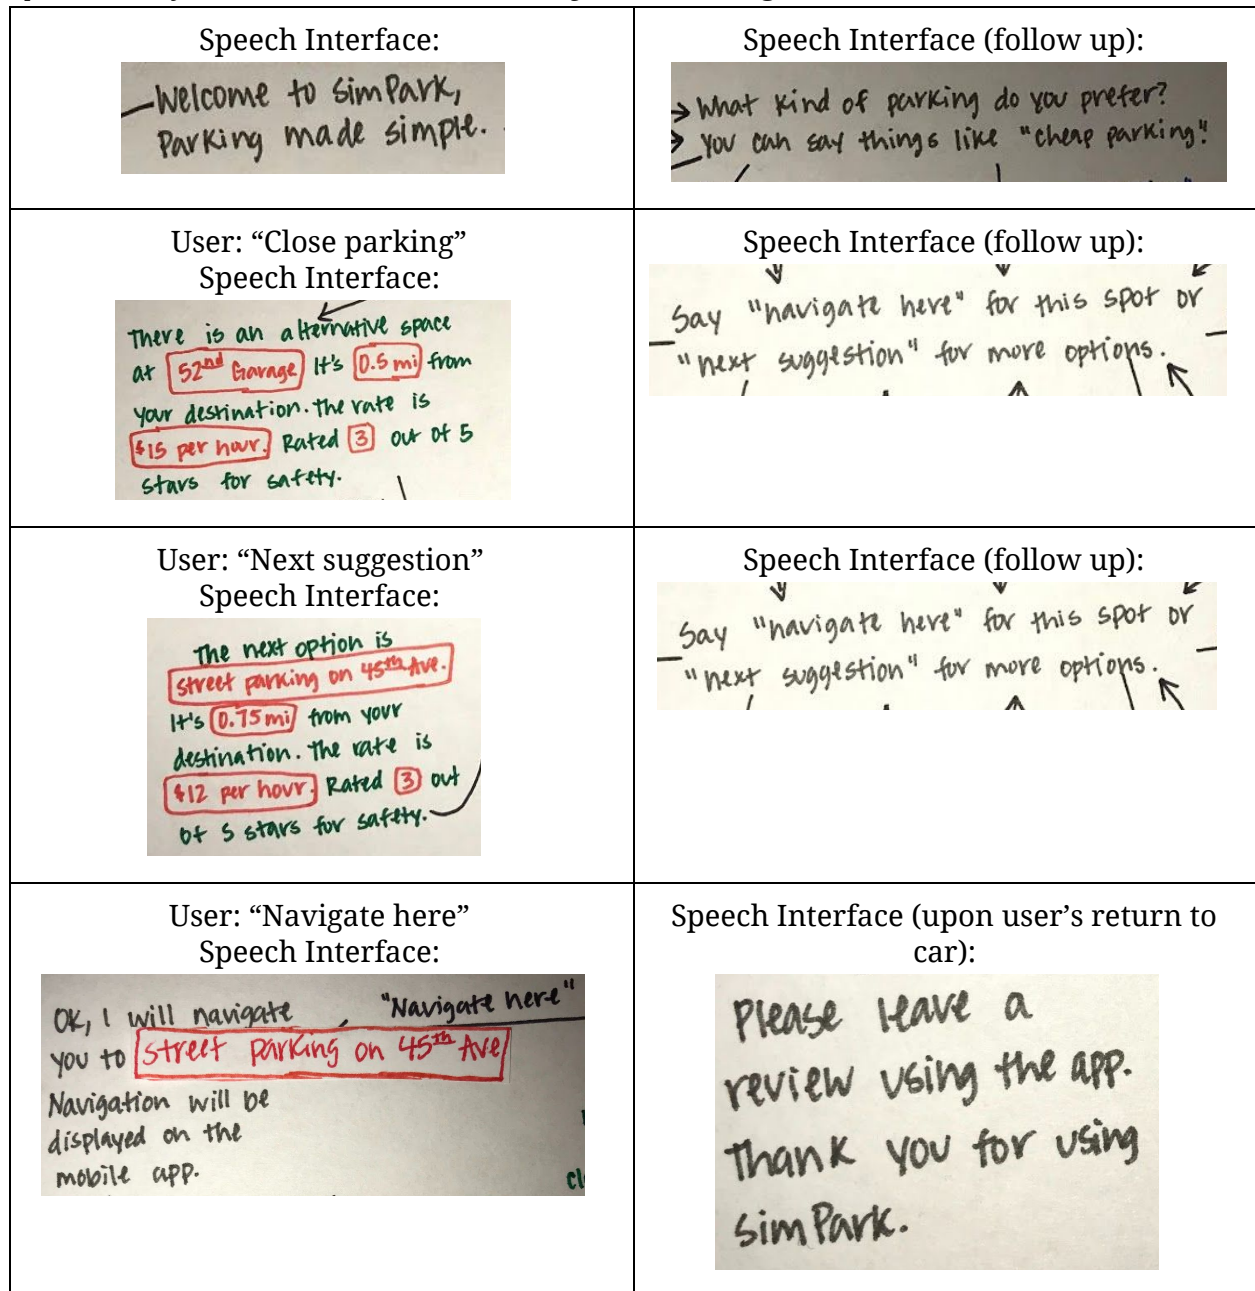 Speech Interface:
Welcome to SimPark,
Parking made simple.
Speech Interface (follow up):
What kind of parking do you prefer?
You can say things like "cheap parking".
User: “Close parking”
Speech Interface:
There is an alternative space
at 52nd Garage It's 0.5 mi from
your destination. The rate is
$15 per hour. Rated 3 out of 5
stars for safety.
Speech Interface (follow up):
Say "navigate here" for this spot or
"next suggestion" for more options.
User: “Next suggestion”
Speech Interface:
The next option is
street parking on 45th Ave.
It's 0.75 mi from your
destination. The rate is
$12 per hour. Rated 3 out
of 5 stars for safety.
Speech Interface (follow up):
Say "navigate here" for this spot or
"next suggestion" for more options.
User: “Navigate here”
Speech Interface:
OK, I will navigate "Navigate here"
you to street parking on 45th Ave
Navigation will be
displayed on the
mobile app.
Speech Interface (upon user’s return to
car):
Please leave a
review using the app.
Thank you for using
simPark.